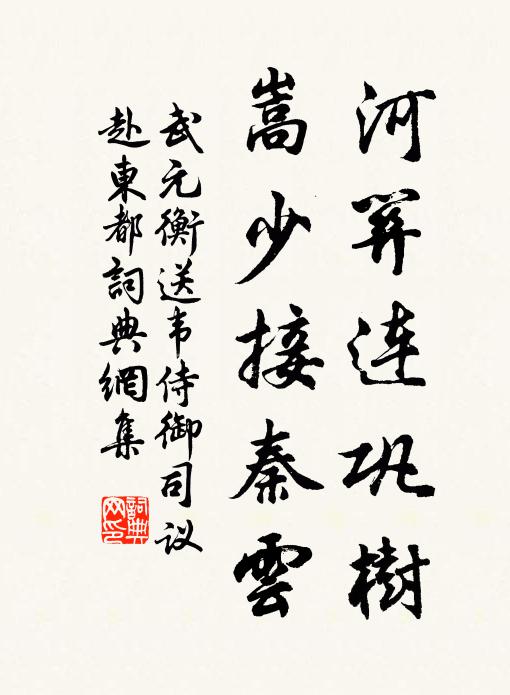 河关連巩樹
嵩少接秦雲
武元衡送韦侍御司议
赴東都詞典網集
詞典
网印